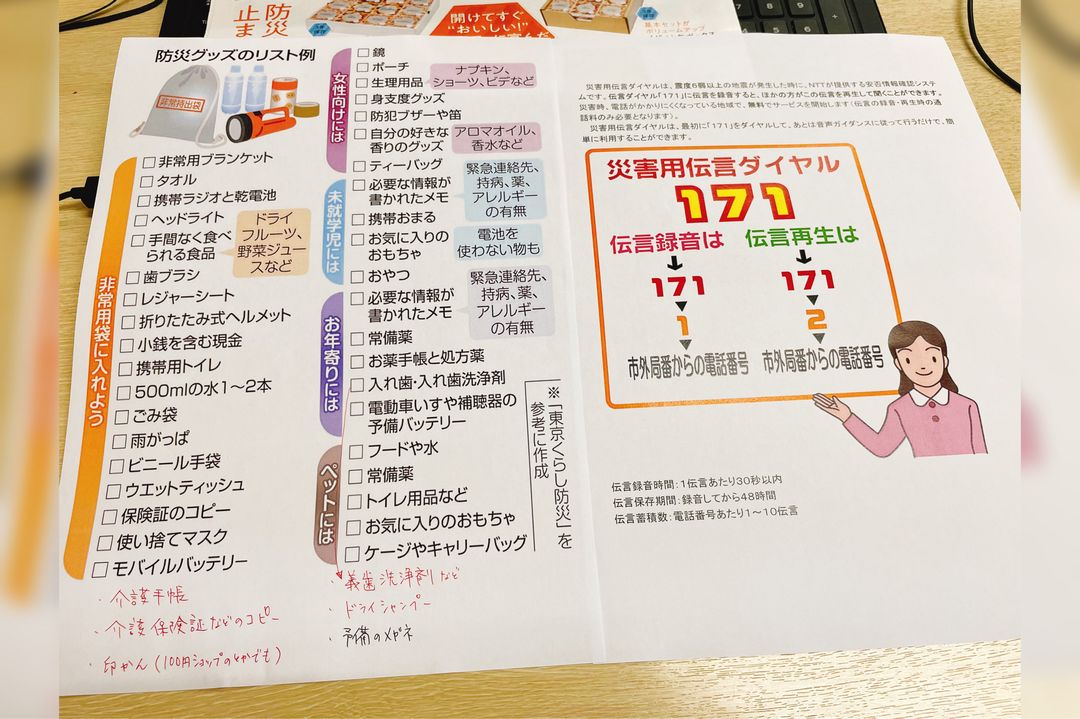 防災
止ま
開けてすぐ
"おいしい!"
基本セットが
ボリュームアップ
防災グッズのリスト例
非常持出袋
非常用袋に入れよう
□非常用ブランケット
□タオル
□携帯ラジオと乾電池
□ヘッドライト
□手間なく食べ
られる食品
ドライ
フルーツ、
野菜ジュー
スなど
□歯ブラシ
□レジャーシート
□折りたたみ式ヘルメット
□小銭を含む現金
□携帯用トイレ
□500mlの水1〜2本
□ごみ袋
□雨がっぱ
□ビニール手袋
□ウエットティッシュ
□保険証のコピー
□使い捨てマスク
□モバイルバッテリー
・介護手帳
・介護保険証などのコピー
・印かん(100円ショップのとかでも)
女性向けには
□鏡
□ポーチ
□生理用品
ナプキン、
ショーツ、ビデなど
□身支度グッズ
□防犯ブザーや笛
□自分の好きな
香りのグッズ
アロマオイル、
香水など
□ティーバッグ
未就学児には
□必要な情報が
書かれたメモ
緊急連絡先、
持病、薬、
アレルギー
の有無
□携帯おまる
□お気に入りの
おもちゃ
電池を
使わない物も
□おやつ
お年寄りには
□必要な情報が
書かれたメモ
緊急連絡先、
持病、薬、
アレルギー
の有無
□常備薬
□お薬手帳と処方薬
□入れ歯・入れ歯洗浄剤
□電動車いすや補聴器の
予備バッテリー
ペットには
□フードや水
□常備薬
□トイレ用品など
□お気に入りのおもちゃ
□ケージやキャリーバッグ
※「東京くらし防災」を
参考に作成
・義歯洗浄剤など
・ドライシャンプー
・予備のメガネ
災害用伝言ダイヤルは、震度6弱以上の地震が発生した時に、NTTが提供する安否情報確認システ
ムです。伝言ダイヤル「171」に伝言を録音すると、ほかの方がこの伝言を再生して聞くことができます。
災害時、電話がかかりにくくなっている地域で、無料でサービスを開始します(伝言の録音・再生時の通
話料のみ必要となります)。
災害用伝言ダイヤルは、最初に「171」をダイヤルして、あとは音声ガイダンスに従って行うだけで、簡
単に利用することができます。
災害用伝言ダイヤル
171
伝言録音は 伝言再生は
171 171
1 2
市外局番からの電話番号 市外局番からの電話番号
伝言録音時間:1伝言あたり30秒以内
伝言保存期間:録音してから48時間
伝言蓄積数:電話番号あたり1〜10伝言